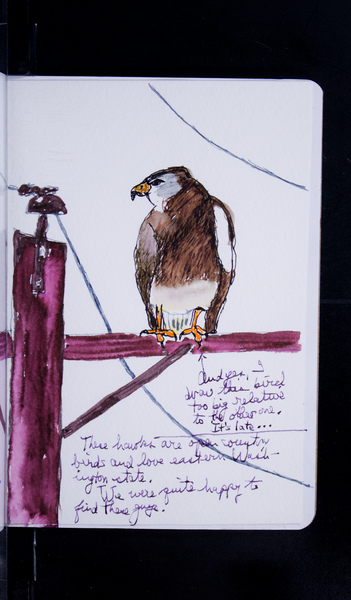 And yes, I
draw this bird
too big relative
to the other one.
It's late...
These hawks are open country
birds and love eastern Wash-
ington state.
We were quite happy to
find these guys.